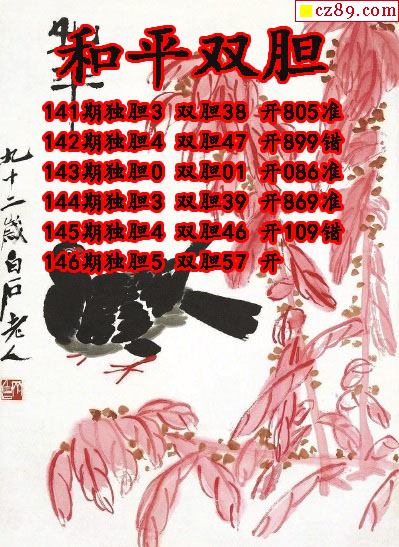 cz89.com
和平双胆
141期独胆3 双胆38 开805准
142期独胆4 双胆47 开899错
143期独胆0 双胆01 开086准
144期独胆3 双胆39 开869准
145期独胆4 双胆46 开109错
146期独胆5 双胆57 开
九十二岁白石老人